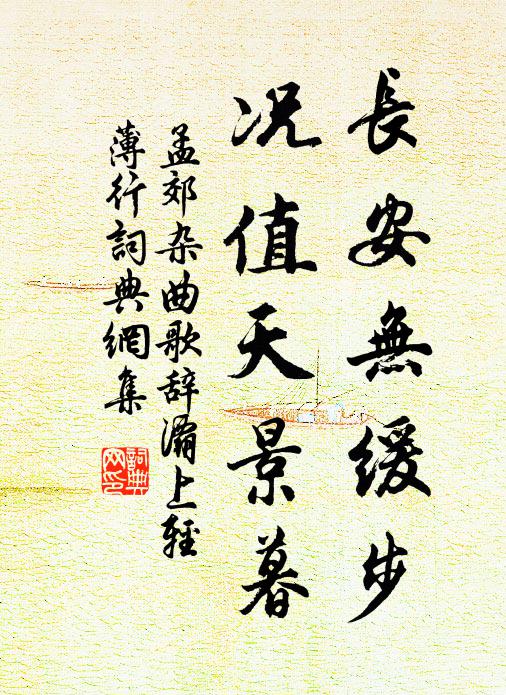 長安無緩步
況值天景暮
孟郊杂曲歌辞灞上輕
薄行詞典網集
詞典
网印